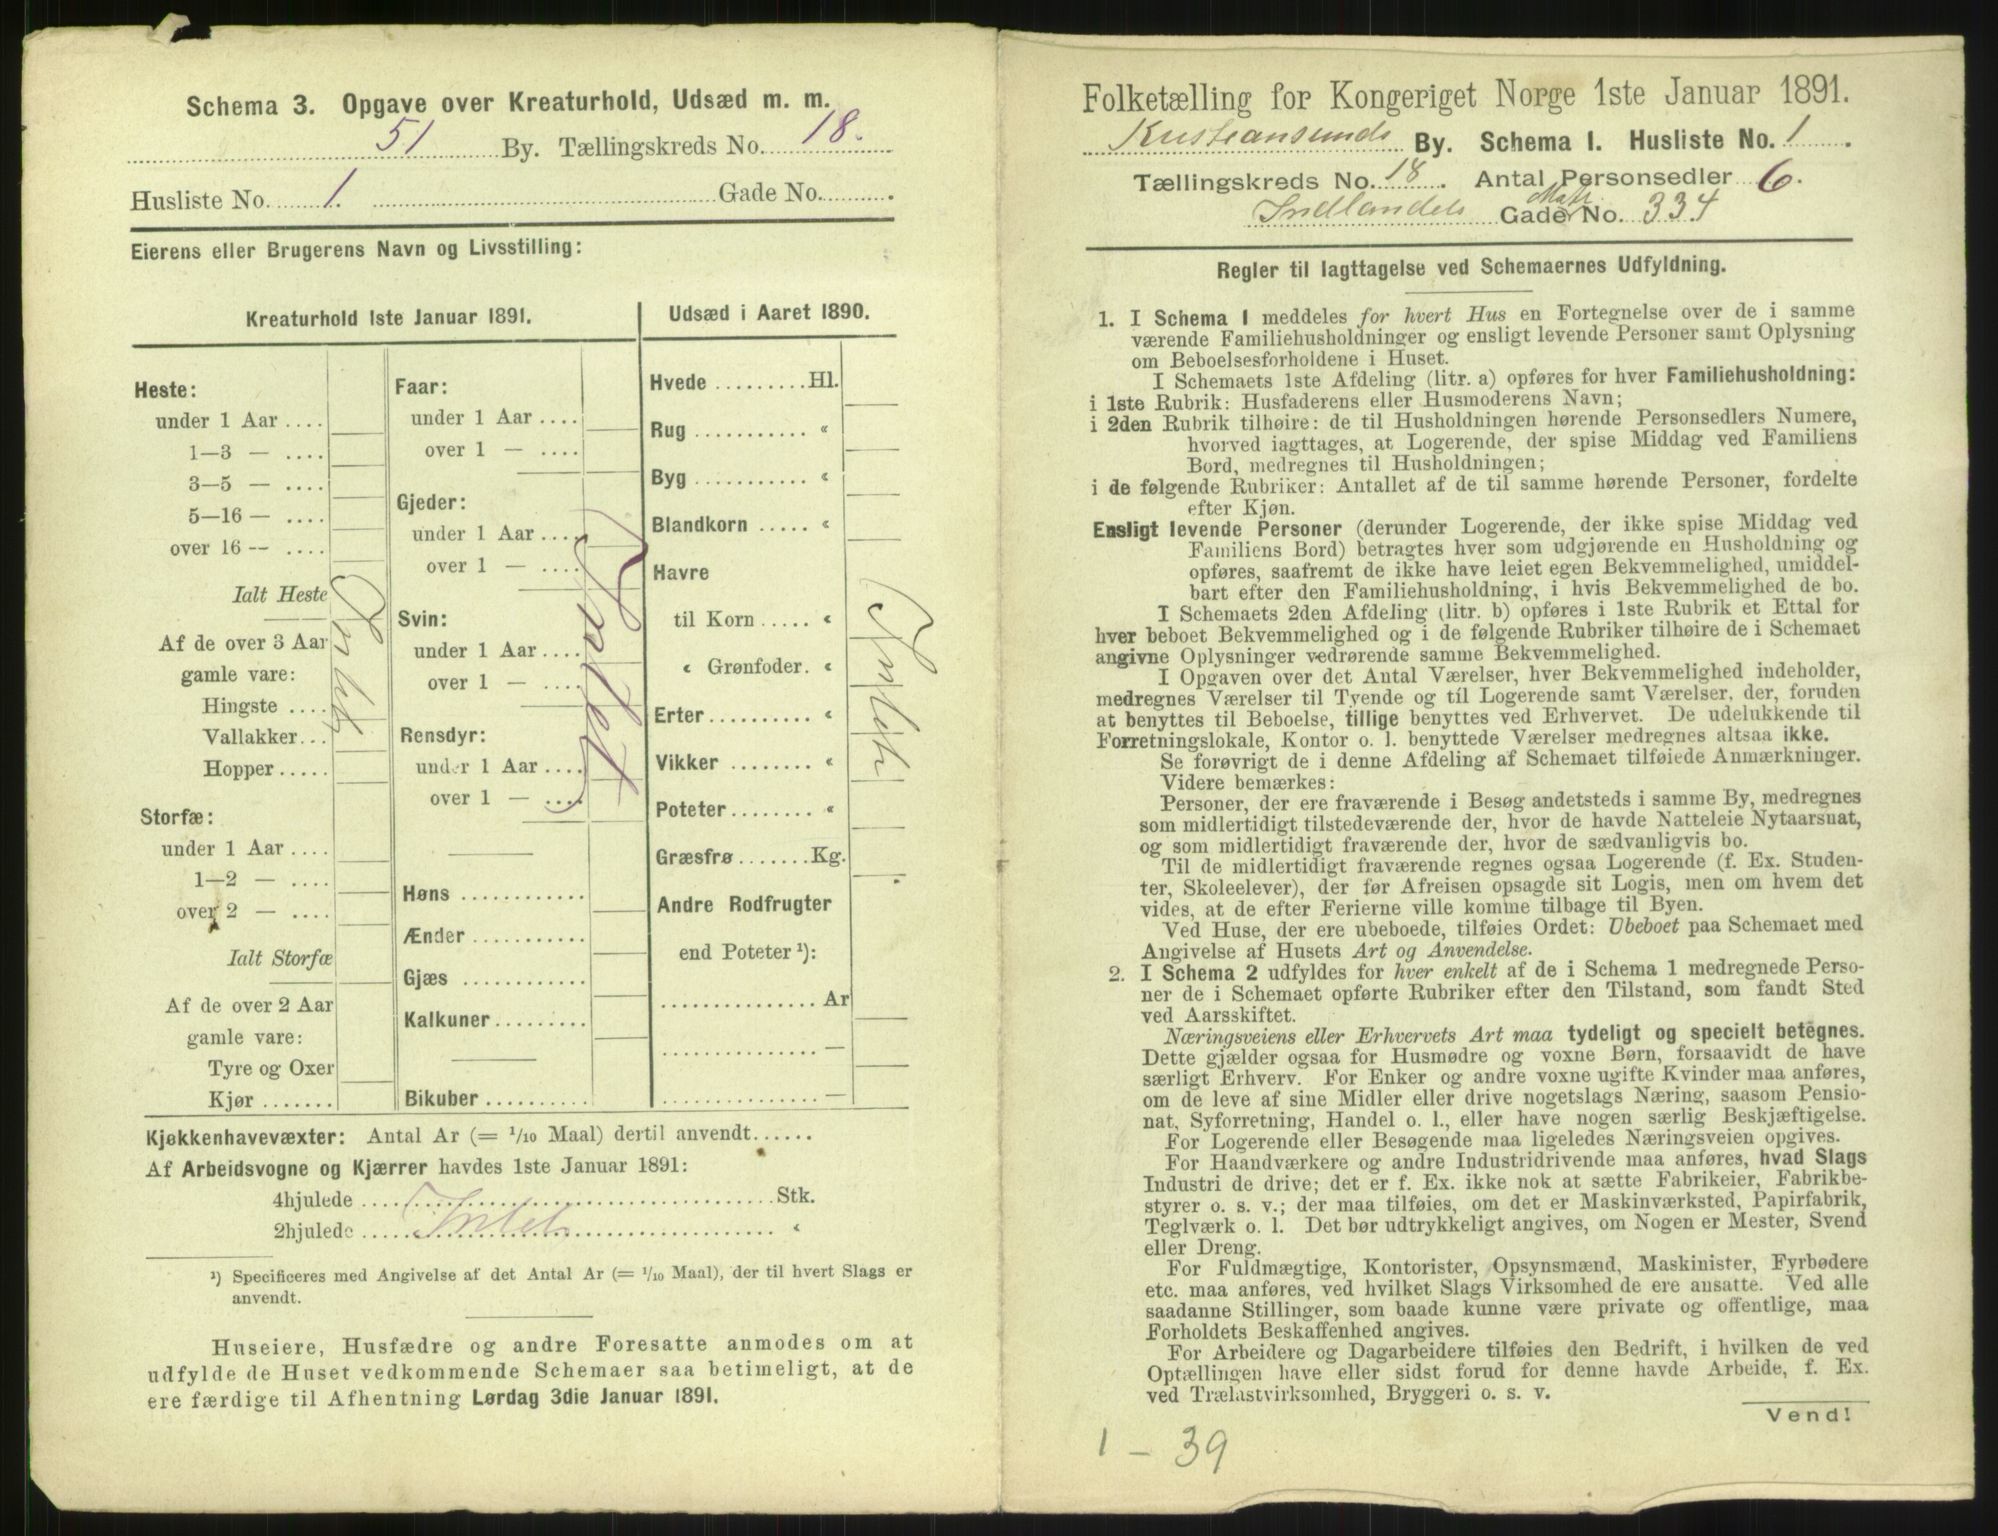 Schema 3. Opgave over Kreaturhold, Udsæd m. m.
51 By. Tællingskreds No. 18.
Husliste No. 1. Gade No.
Eierens eller Brugerens Navn og Livsstilling:
Kreaturhold 1ste Januar 1891.
Heste:
under 1 Aar ....
1—3 — ....
3—5 — ....
5—16 — ....
over 16 -- ....
Ialt Heste
Af de over 3 Aar
gamle vare:
Hingste ....
Vallakker...
Hopper.....
Storfæ:
under 1 Aar ....
1—2 — ....
over 2 — ....
Ialt Storfæ
Af de over 2 Aar
gamle vare:
Tyre og Oxer
Kjør.......
Intet
Faar:
under 1 Aar ....
over 1 — ....
Gjeder:
under 1 Aar ....
over 1 — ....
Svin:
under 1 Aar ....
over 1 — ....
Rensdyr:
under 1 Aar ....
over 1 — ....
Høns ............
Ænder...........
Gjæs ............
Kalkuner.........
Bikuber ..........
Intet
Udsæd i Aaret 1890.
Hvede .........Hl.
Rug ........... «
Byg ........... «
Blandkorn ..... «
Havre
til Korn ..... «
« Grønfoder. «
Erter.......... «
Vikker ........ «
Poteter........ «
Græsfrø.......Kg.
Andre Rodfrugter
end Poteter ¹):
............... Ar
............... —
............... —
Intet
Kjøkkenhavevæxter: Antal Ar (= 1/10 Maal) dertil anvendt......
Af Arbeidsvogne og Kjærrer havdes 1ste Januar 1891:
4hjulede ........ Stk.
2hjulede ........ «
Intet
¹) Specificeres med Angivelse af det Antal Ar (= 1/10 Maal), der til hvert Slags er
anvendt.
Huseiere, Husfædre og andre Foresatte anmodes om at
udfylde de Huset vedkommende Schemaer saa betimeligt, at de
ere færdige til Afhentning Lørdag 3die Januar 1891.
Folketælling for Kongeriget Norge 1ste Januar 1891.
Kristiansunds By. Schema I. Husliste No. 1
Tællingskreds No. 18. Antal Personsedler 6.
Indlandets Gade Matr. No. 334
Regler til Iagttagelse ved Schemaernes Udfyldning.
1. I Schema 1 meddeles for hvert Hus en Fortegnelse over de i samme
værende Familiehusholdninger og ensligt levende Personer samt Oplysning
om Beboelsesforholdene i Huset.
I Schemaets 1ste Afdeling (litr. a) opføres for hver Familiehusholdning:
i 1ste Rubrik: Husfaderens eller Husmoderens Navn;
i 2den Rubrik tilhøire: de til Husholdningen hørende Personsedlers Numere,
hvorved iagttages, at Logerende, der spise Middag ved Familiens
Bord, medregnes til Husholdningen;
i de følgende Rubriker: Antallet af de til samme hørende Personer, fordelte
efter Kjøn.
Ensligt levende Personer (derunder Logerende, der ikke spise Middag ved
Familiens Bord) betragtes hver som udgjørende en Husholdning og
opføres, saafremt de ikke have leiet egen Bekvemmelighed, umiddel-
bart efter den Familiehusholdning, i hvis Bekvemmelighed de bo.
I Schemaets 2den Afdeling (litr. b) opføres i 1ste Rubrik et Ettal for
hver beboet Bekvemmelighed og i de følgende Rubriker tilhøire de i Schemaet
angivne Oplysninger vedrørende samme Bekvemmelighed.
I Opgaven over det Antal Værelser, hver Bekvemmelighed indeholder,
medregnes Værelser til Tyende og til Logerende samt Værelser, der, foruden
at benyttes til Beboelse, tillige benyttes ved Erhvervet. De udelukkende til
Forretningslokale, Kontor o. l. benyttede Værelser medregnes altsaa ikke.
Se forøvrigt de i denne Afdeling af Schemaet tilføiede Anmærkninger.
Videre bemærkes:
Personer, der ere fraværende i Besøg andetsteds i samme By, medregnes
som midlertidigt tilstedeværende der, hvor de havde Natteleie Nytaarsnat,
og som midlertidigt fraværende der, hvor de sædvanligvis bo.
Til de midlertidigt fraværende regnes ogsaa Logerende (f. Ex. Studen-
ter, Skoleelever), der før Afreisen opsagde sit Logis, men om hvem det
vides, at de efter Ferierne ville komme tilbage til Byen.
Ved Huse, der ere ubeboede, tilføies Ordet: Ubeboet paa Schemaet med
Angivelse af Husets Art og Anvendelse.
2. I Schema 2 udfyldes for hver enkelt af de i Schema 1 medregnede Perso-
ner de i Schemaet opførte Rubriker efter den Tilstand, som fandt Sted
ved Aarsskiftet.
Næringsveiens eller Erhvervets Art maa tydeligt og specielt betegnes.
Dette gjælder ogsaa for Husmødre og voxne Børn, forsaavidt de have
særligt Erhverv. For Enker og andre voxne ugifte Kvinder maa anføres,
om de leve af sine Midler eller drive nogetslags Næring, saasom Pensio-
nat, Syforretning, Handel o. l., eller have nogen særlig Beskjæftigelse.
For Logerende eller Besøgende maa ligeledes Næringsveien opgives.
For Haandværkere og andre Industridrivende maa anføres, hvad Slags
Industri de drive; det er f. Ex. ikke nok at sætte Fabrikeier, Fabrikbe-
styrer o. s. v.; der maa tilføies, om det er Maskinværksted, Papirfabrik,
Teglværk o. l. Det bør udtrykkeligt angives, om Nogen er Mester, Svend
eller Dreng.
For Fuldmægtige, Kontorister, Opsynsmænd, Maskinister, Fyrbødere
etc. maa anføres, ved hvilket Slags Virksomhed de ere ansatte. Ved alle
saadanne Stillinger, som baade kunne være private og offentlige, maa
Forholdets Beskaffenhed angives.
For Arbeidere og Dagarbeidere tilføies den Bedrift, i hvilken de ved
Optællingen have eller sidst forud for denne havde Arbeide, f. Ex.
ved Trælastvirksomhed, Bryggeri o. s. v.
Vend!
1 — 39